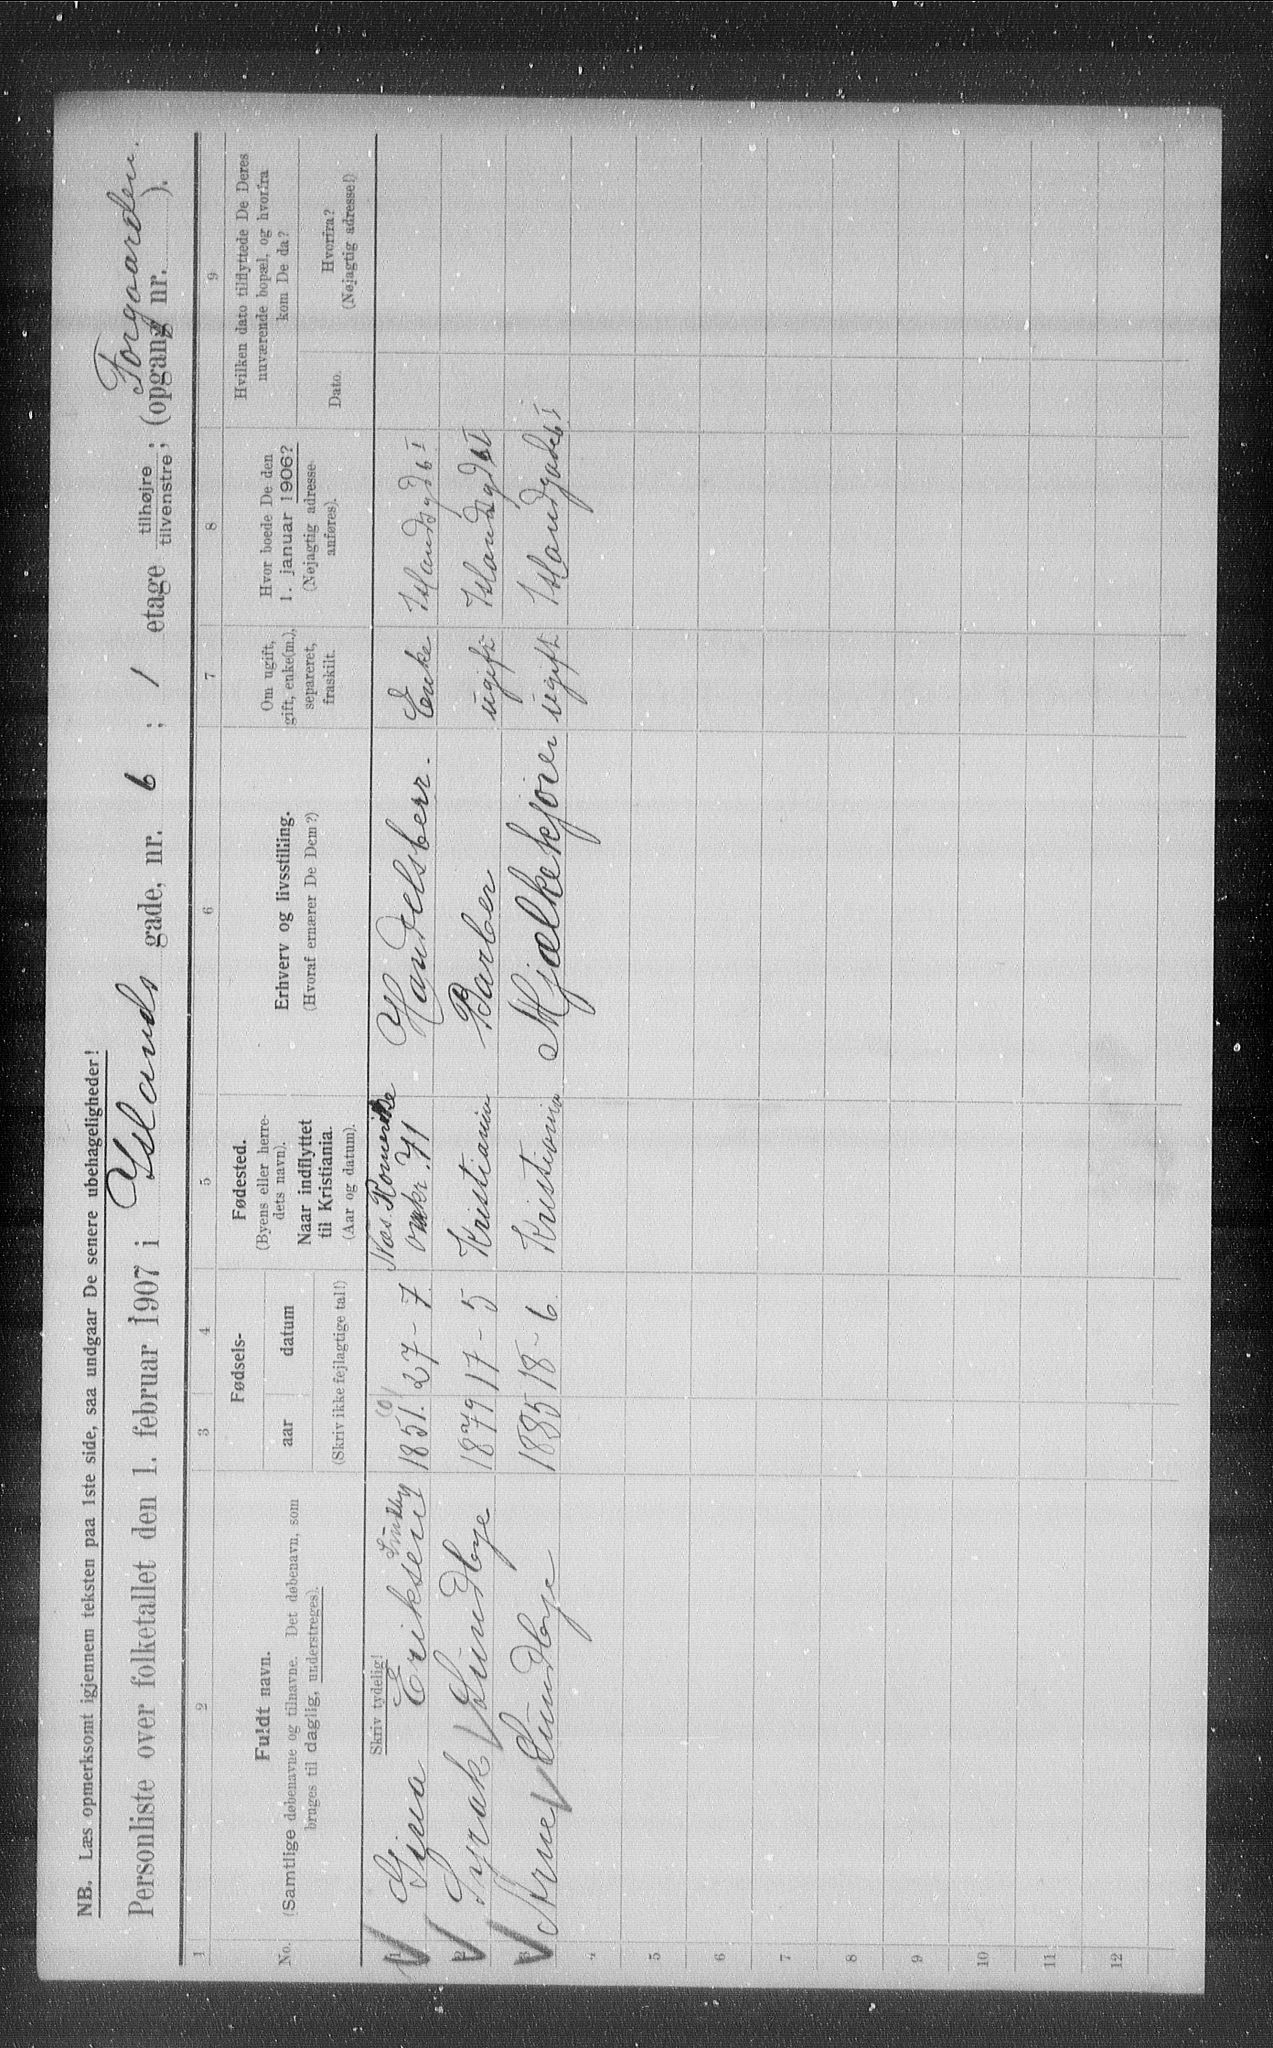 NB. Læs opmerksomt igjennem teksten paa 1ste side, saa undgaar De senere ubehageligheder!
Forgaarden.
Personliste over folketallet den 1. februar 1907 i Yslands gade, nr. 6 ; 1 etage tilhøjre ; tilvenstre ; (opgang nr. ).
1 2 3 4 5 6 7 8 9
No.
Fuldt navn.
(Samtlige døbenavne og tilnavne. Det døbenavn, som
bruges til daglig, understreges).
Fødsels-
aar datum
(Skriv ikke fejlagtige tal!)
Fødested.
(Byens eller herre-
dets navn).
Naar indflyttet
til Kristiania.
(Aar og datum).
Erhverv og livsstilling.
(Hvoraf ernærer De Dem?)
Om ugift,
gift, enke(m.),
separeret,
fraskilt.
Hvor boede De den
1. januar 1906?
(Nøjagtig adresse
anføres).
Hvilken dato tilflyttede De Deres
nuværende bopæl, og hvorfra
kom De da?
Dato.
Hvorfra?
(Nøjagtig adresse!)
Skriv tydelig!
1 Gina Eriksen 1851. 27 - 7. Næs. Romerike omkr. 71 Handelsberr. Enke Islandsgd 6 I
2 Syrak Sundbye 1879 17 - 5 Kristiania Barber ugift Islandsgd 6 I
3 Arne Sundbye 1885 18 - 6. Kristiania Mjælkekjører ugift Islandgade 6 I
4
5
6
7
8
9
10
11
12